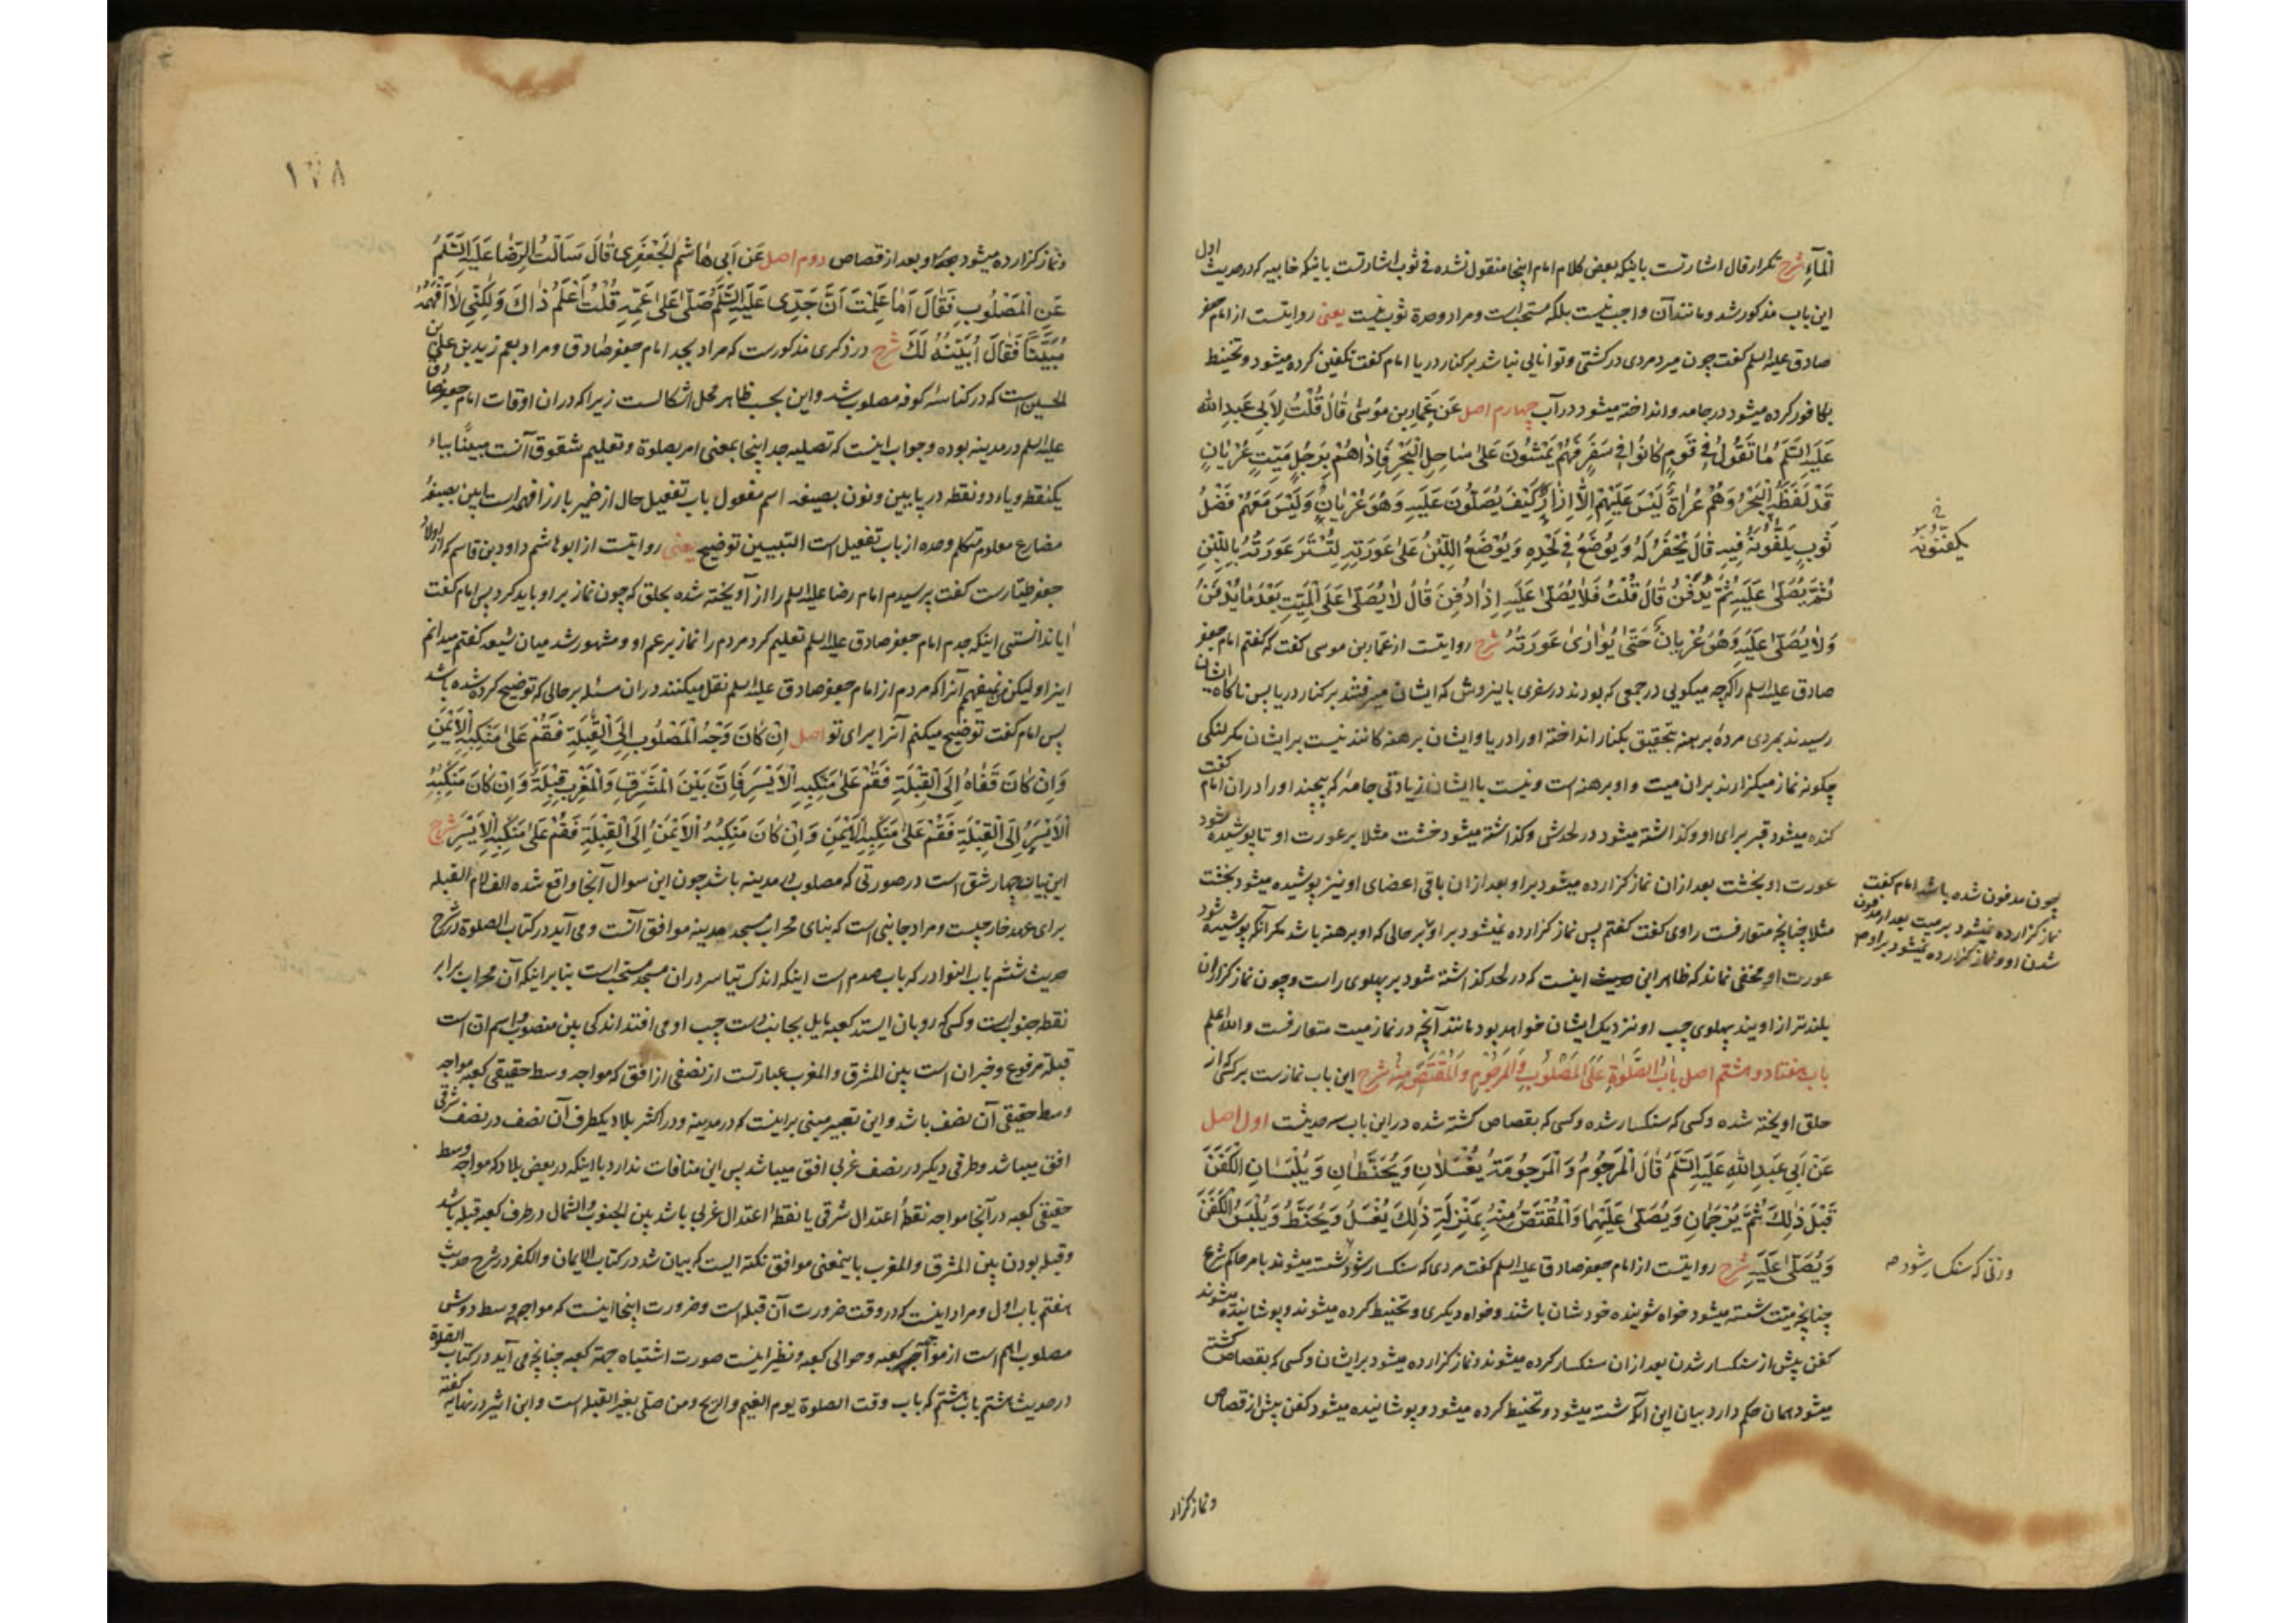 اَلْمآءِ شرح تکرار قال اشارتست باینکه بعض کلام امام اینجا منقول نشده فی ثوب اشارتست باینکه خابیه که در حدیث اول
این باب مذکور شد و مانند آن واجب نیست بلکه مستحب است و مراد وحدة ثوب نیست یعنی روایتست از امام جعفر
صادق علیه السلم گفت چون میرد مردی در کشتی و توانایی نباشد بر کنار دریا امام گفت تکفین کرده میشود و تحنیط
بکافور کرده میشود در جامه و انداخته میشود در آب چهارم اصل عَن عَمّارِ بن مُوسٰی قٰالَ قُلْتُ لِاَبی عَبدِ الله
عَلَیهِ السَّلَمُ مٰا تَقُولُ فی قَومٍ کٰانُوا فی سَفَرٍ فَهُمْ یَمْشُونَ عَلیٰ سٰاحِلِ الْبَحْرِ فَاِذٰا هُمْ بِرَجُلٍ مَیّتٍ عُرْیٰانٍ
قَدْ لَفَظَهُ الْبَحْرُ وَهُمْ عُرٰاةٌ لَیْسَ عَلَیْهِمْ اِلاّٰ اِزٰارٌ کَیْفَ یُصَلّوُنَ عَلَیهِ وَهُوَ عُرْیٰانٌ وَلَیْسَ مَعَهُمْ فَضْلُ
ثَوْبٍ یَلُفُّونَهُ فیهِ قٰالَ یُحْفَرُ لَهُ وَیُوضَعُ فی لَحْدِهِ وَیُوْضَعُ اللَّبِنُ عَلیٰ عَورَتِهِ لِتُسْتَرَ عَورَتُهُ بِاللَّبِنِ
ثُمَّ یُصَلّیٰ عَلَیهِ ثُمَّ یُدْفَنُ قٰالَ قُلْتُ فَلٰا یُصَلّیٰ عَلَیهِ اِذٰا دُفِنَ قٰالَ لٰا یُصَلّیٰ عَلَی الْمَیّتِ بَعْدَ مٰا یُدْفَنُ
وَلٰا یُصَلّیٰ عَلَیهِ وَهُوَ عُرْیٰانٌ حَتّیٰ یُوٰارٰی عَورَتُهُ شرح روایتست از عمار بن موسی گفت که گفتم امام جعفر
صادق علیه السلم را که چه میگویی در جمعی که بودند در سفری باینروش که ایشان میرفتند بر کنار دریا پس ناگاه ایشان
رسیدند بمردی مردهٔ برهنه بتحقیق بکنار انداخته او را دریا و ایشان برهنه کانند نیست بر ایشان مگر لنگی
چگونه نماز میگزارند بران میت و او برهنه است و نیست با ایشان زیادتی جامهٔ که پیچند او را دران امام گفت
کنده میشود قبر برای او و گذاشته میشود در لحدش و گذاشته میشود خشت مثلا بر عورت او تا پوشیده شود
عورت او بخشت بعد ازان نماز گزارده میشود بر او بعد ازان باقی اعضای او نیز پوشیده میشود بخشت
مثلا چنانچه متعارفست راوی گفت گفتم پس نماز گزارده نمیشود بر او بر حالی که او برهنه باشد مگر آنکه پوشیده شود
عورت او مخفی نماند که ظاهر این حدیث اینست که در لحد گذاشته شود بر پهلوی راست و چون نماز گزاران
بلندتر از اویند پهلوی چپ او نزدیک ایشان خواهد بود مانند آنچه در نماز میت متعارفست والله اعلم
باب هفتاد و هشتم اصل بٰابُ الصَّلٰوةِ عَلَی الْمَصْلُوبِ وَالْمَرجُومِ وَالْمُقْتَصِّ مِنْهُ شرح این باب نمازست بر کسی که از
حلق اویخته شده و کسی که سنکسار شده و کسی که بقصاص کشته شده در این باب سه حدیثست اول اصل
عَنْ اَبی عَبدِ اللهِ عَلَیهِ السَّلَمُ قٰالَ الْمَرجُومُ وَ الْمَرجُومَةُ یُغْسَلٰانِ وَیُحَنَّطٰانِ وَیُلْبَسٰانِ الْکَفَنَ
قَبْلَ ذٰلِکَ ثُمَّ یُرْجَمٰانِ وَیُصَلّیٰ عَلَیْهِمٰا وَالْمُقْتَصُّ مِنْهُ بِمَنْزِلَةِ ذٰلِکَ یُغْسَلُ وَیُحَنَّطُ وَیُلْبَسُ الْکَفَنَ
وَیُصَلّیٰ عَلَیهِ شرح روایتست از امام جعفر صادق علیه السلم گفت مردی که سنکسار شود شسته میشوند بامر حاکم شرع
چنانچه میّت شسته میشود خواه شوینده خودشان باشند و خواه دیگری و تحنیط کرده میشوند و پوشانیده میشوند
کفن پیش از سنکسار شدن بعد ازان سنکسار کرده میشوند و نماز گزارده میشود بر ایشان و کسی که بقصاص کشته
میشود همان حکم دارد بیان این آنکه شسته میشود و تحنیط کرده میشود و پوشانیده میشود کفن پیش از قصاص
و نماز گزار
یکفنونه
چون مدفون شده باشد امام گفت
نماز گزارده نمیشود بر میت بعد از مدفون
شدن او و نماز گزارده نمیشود بر او
وزنی که سنکسار شود
۱۷۸
و نماز گزارده میشود بر او بعد از قصاص دوم اصل عَن اَبی هٰاشمٍ الْجَعْفَری قٰالَ سَاَلْتُ الرِّضٰا عَلَیهِ السَّلَمُ
عَنِ الْمَصْلُوبِ فَقٰالَ اَمٰا عَلِمْتَ اَنَّ جَدّی عَلَیهِ السَّلَمُ صَلّیٰ عَلیٰ عَمِّهِ قُلْتُ اَعْلَمُ ذٰاکَ وَلٰکِنّی لٰا اَفْهَمُهُ
مُبَیَّنًا فَقٰالَ اُبَیِّنُهُ لَکَ شرح در ذکری مذکورست که مراد بجد امام جعفر صادق و مراد بعم زید بن علی بن
الحسین است که در کناسهٔ کوفه مصلوب شد و این بحسب ظاهر محل اشکالست زیرا که دران اوقات امام جعفر صادق
علیه السلم در مدینه بوده و جواب اینست که تصلیه جد اینجا بمعنی امر بصلوة و تعلیم شقوق آنست مبینًا بباء
یکنقطه و یاء دو نقطه در پایین و نون بصیغهٔ اسم مفعول باب تفعیل حال از ضمیر بارز افهمه است ابین بصیغهٔ
مضارع معلوم متکلم وحده از باب تفعیل است التبیین توضیح یعنی روایتست از ابو هاشم داود بن قاسم که از اولاد
جعفر طیّارست گفت پرسیدم امام رضا علیه السلم را از آویخته شده بحلق که چون نماز بر او باید کرد پس امام گفت
آیا ندانستی اینکه جدم امام جعفر صادق علیه السلم تعلیم کرد مردم را نماز بر عم او و مشهور شد میان شیعه گفتم میدانم
اینرا و لیکن نمیفهمم آنرا که مردم از امام جعفر صادق علیه السلم نقل میکنند دران مسئله بر حالی که توضیح کرده شده باشد
پس امام گفت توضیح میکنم آنرا برای تو اصل اِنْ کٰانَ وَجْهُ الْمَصْلُوبِ اِلَی الْقِبْلَةِ فَقُمْ عَلیٰ مَنْکِبِهِ الْاَیْمَنِ
وَاِنْ کٰانَ قَفٰاهُ اِلَی الْقِبْلَةِ فَقُمْ عَلیٰ مَنْکِبِهِ الْاَیْسَرِ فَاِنَّ بَیْنَ الْمَشْرِقِ وَالْمَغْرِبِ قِبْلَةٌ وَاِنْ کٰانَ مَنْکِبُهُ
الْاَیْسَرُ اِلَی الْقِبْلَةِ فَقُمْ عَلیٰ مَنْکِبِهِ الْاَیْمَنِ وَاِنْ کٰانَ مَنْکِبُهُ الْاَیْمَنُ اِلَی الْقِبْلَةِ فَقُمْ عَلیٰ مَنْکِبِهِ الْاَیْسَرِ شرح
این بیان چهار شق است در صورتی که مصلوب در مدینه باشد چون این سوال آنجا واقع شده الف لام القبله
برای عهد خارجیست و مراد جانبی است که بنای محراب مسجد مدینه موافق آنست و می آید در کتاب الصلوة در شرح
حدیث ششم باب النوادر که باب صدم است اینکه اندک تیاسر دران مسجد مستحب است بنا بر اینکه آن محراب برابر
نقطه جنوب است و کسی که رو بان ایستد کعبه مایل بجانب دست چپ او می افتد اندکی بین منصوب و اسم ان است
قبلة مرفوع و خبر ان است بین المشرق والمغرب عبارتست از نصفی از افق که مواجه وسط حقیقی کعبه مواجه
وسط حقیقی آن نصف باشد و این تعبیر مبنی بر اینست که در مدینه و در اکثر بلاد یکطرف آن نصف در نصف شرقی
افق میباشد و طرفی دیگر در نصف غربی افق میباشد پس این منافات ندارد با اینکه در بعض بلاد که مواجه وسط
حقیقی کعبه در آنجا مواجه نقطهٔ اعتدال شرقی یا نقطهٔ اعتدال غربی باشد بین الجنوب والشمال در طرف کعبه قبله باشد
و قبله بودن بین المشرق والمغرب باینمعنی موافق نکته ایست که بیان شد در کتاب الایمان والکفر در شرح حدیث
هفتم باب اول و مراد اینست که در وقت ضرورت آن قبله است و ضرورت اینجا اینست که مواجهه وسط دوش
مصلوب اهم است از مواجهه کعبه و حوالی کعبه و نظیر اینست صورت اشتباه جهة کعبه چنانچه می آید در کتاب الصلوة
در حدیث هشتم باب هشتم که باب وقت الصلوة یوم الغیم والریح ومن صلی بغیر القبله است و ابن اثیر در نهایه گفته